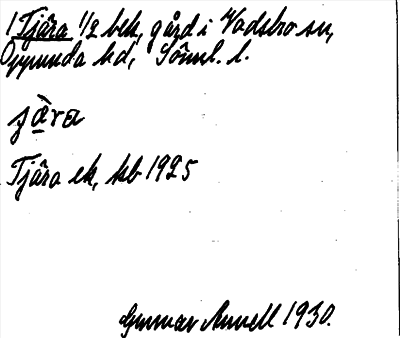 1 Tjära 1/2 bek, gård i Vadsbro sn,
Oppunda hd, Söml. l.
jàra
Tjära ek, kb 1925
Gunnar Annell 1930.